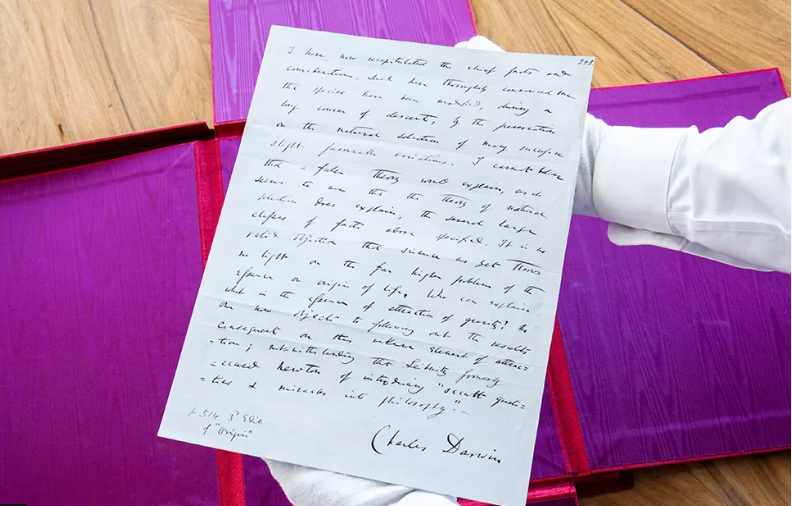 248
I have now recapitulated the chief facts and
considerations, which have thoroughly convinced me
that species have been modified, during a
long course of descent, by the preservation
or the natural selection of many successive
slight favourable variations. I cannot believe
that a false theory would explain, as it
seems to me that the theory of natural
selection does explain, the several large
classes of facts above specified. It is no
valid objection that science as yet throws
no light on the far higher problem of the
essence or origin of life. Who can explain
what is the essence of attraction of gravity? No
one now objects to following out the results
consequent on this unknown element of attrac=
=tion; notwithstanding that Leibnitz formerly
accused Newton of introducing "occult quali=
=ties & miracles into philosophy."—
p 514 3d Edit
of "Origin"
Charles Darwin